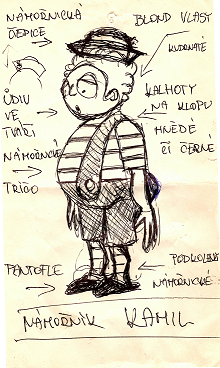 NÁMOŘNICKÁ
ČEPICE
BLOND VLASY
KUDRNATÉ
ÚDIV
VE
TVÁŘI
KALHOTY
NA KLOPU
HNĚDÉ
ČI ČERNÉ
NÁMOŘNICKÉ
TRIČO
PANTOFLE
PODKOLENKY
NÁMOŘNICKÉ
NÁMOŘNÍK KAMIL